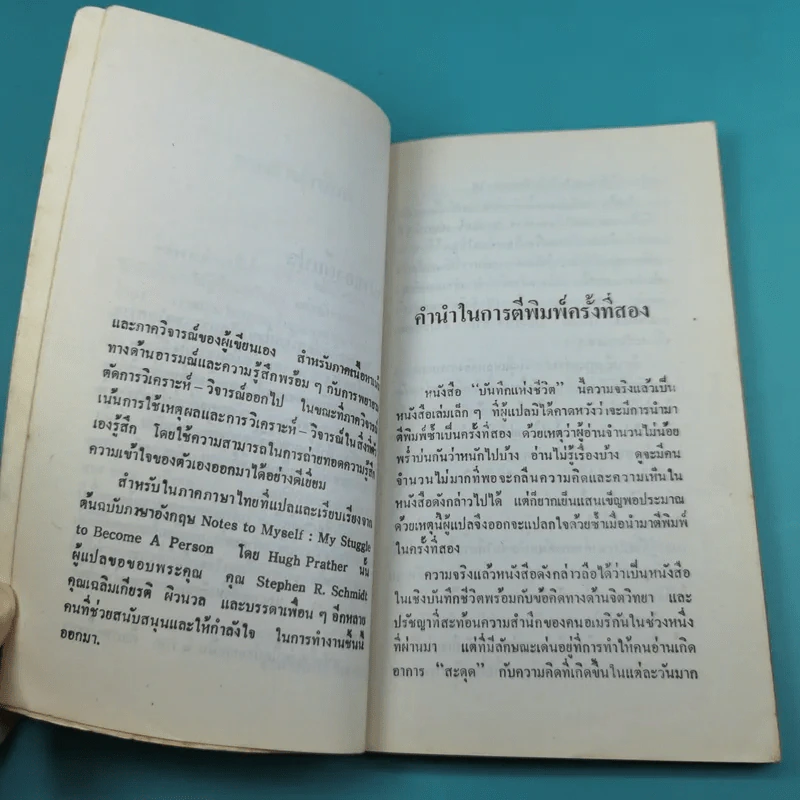 และภาควิจารณ์ของผู้เขียนเอง สำหรับภาคเนื้อหาเน้น
ทางด้านอารมณ์และความรู้สึกพร้อม ๆ กับการพยายาม
ตัดการวิเคราะห์ – วิจารณ์ออกไป ในขณะที่ภาควิจารณ์
เน้นการใช้เหตุผลและการวิเคราะห์ – วิจารณ์ในสิ่งที่ตัว
เองรู้สึก โดยใช้ความสามารถในการถ่ายทอดความรู้สึก
ความเข้าใจของตัวเองออกมาได้อย่างดีเยี่ยม
สำหรับในภาคภาษาไทยที่แปลและเรียบเรียงจาก
ต้นฉบับภาษาอังกฤษ Notes to Myself : My Stuggle
to Become A Person โดย Hugh Prather นั้น
ผู้แปลขอขอบพระคุณ คุณ Stephen R. Schmidt
คุณเฉลิมเกียรติ ผิวนวล และบรรดาเพื่อน ๆ อีกหลาย
คนที่ช่วยสนับสนุนและให้กำลังใจ ในการทำงานชิ้นนี้
ออกมา.
คำนำในการตีพิมพ์ครั้งที่สอง
หนังสือ “บันทึกแห่งชีวิต” นี้ความจริงแล้วเป็น
หนังสือเล่มเล็ก ๆ ที่ผู้แปลมิได้คาดหวังว่าจะมีการนำมา
ตีพิมพ์ซ้ำเป็นครั้งที่สอง ด้วยเหตุว่าผู้อ่านจำนวนไม่น้อย
พร่ำบ่นกันว่าหนักไปบ้าง อ่านไม่รู้เรื่องบ้าง ดูจะมีคน
จำนวนไม่มากที่พอจะกลืนความคิดและความเห็นใน
หนังสือดังกล่าวไปได้ แต่ก็ยากเย็นแสนเข็ญพอประมาณ
ด้วยเหตุนี้ผู้แปลจึงออกจะแปลกใจด้วยซ้ำเมื่อนำมาตีพิมพ์
ในครั้งที่สอง
ความจริงแล้วหนังสือดังกล่าวถือได้ว่าเป็นหนังสือ
ในเชิงบันทึกชีวิตพร้อมกับข้อคิดทางด้านจิตวิทยา และ
ปรัชญาที่สะท้อนความสำนึกของคนอเมริกันในช่วงหนึ่ง
ที่ผ่านมา แต่ที่มีลักษณะเด่นอยู่ที่การทำให้คนอ่านเกิด
อาการ “สะดุด” กับความคิดที่เกิดขึ้นในแต่ละวันมาก